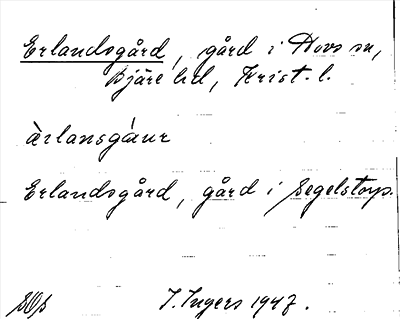 Erlandsgård, gård i Hovs sn,
Bjäre hd, Krist. l.
àrlansgáur
Erlandsgård, gård i Segelstorp.
I. Ingers 1947.